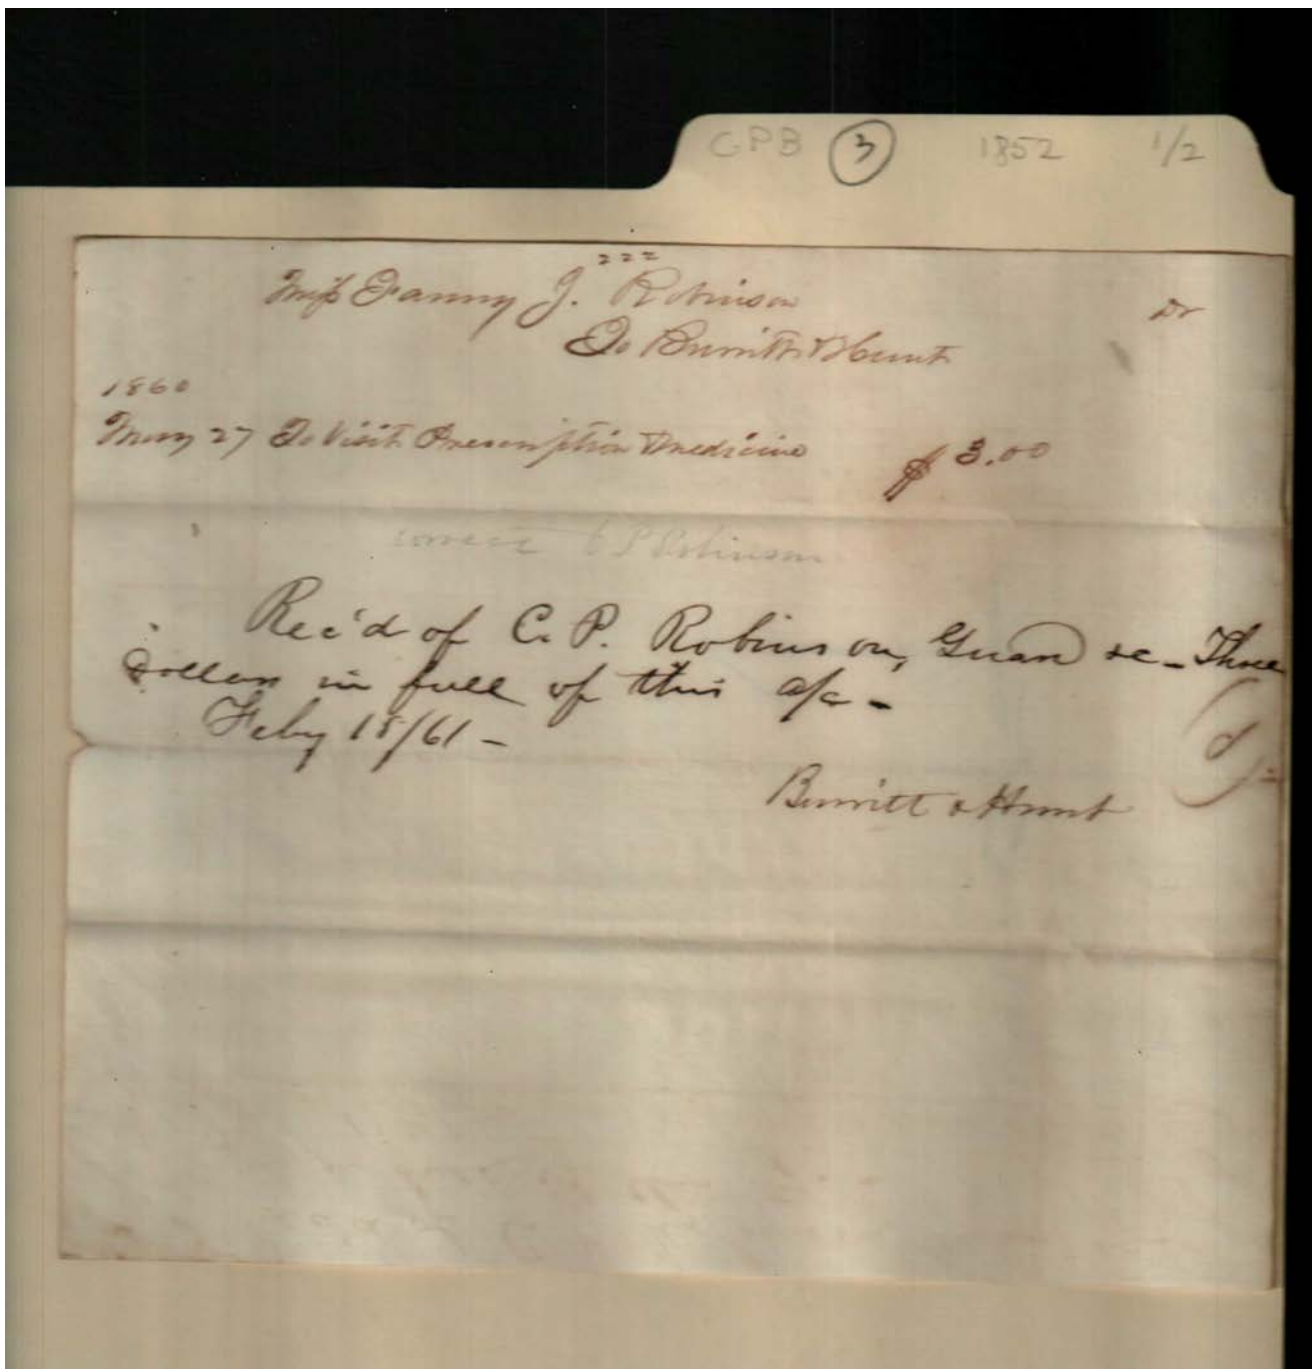 CPB 3 1852 1/2
222
Miss Fanny J. Robinson Dr
To Burritt & Hunt
1860
May 27 To Visit Prescription & Medicine $3.00
correct C P Robinson
Rec'd of C. P. Robinson, Guard &c - Three
Dollars in full of this a/c -
Feby 18/61 -
Burritt & Hunt